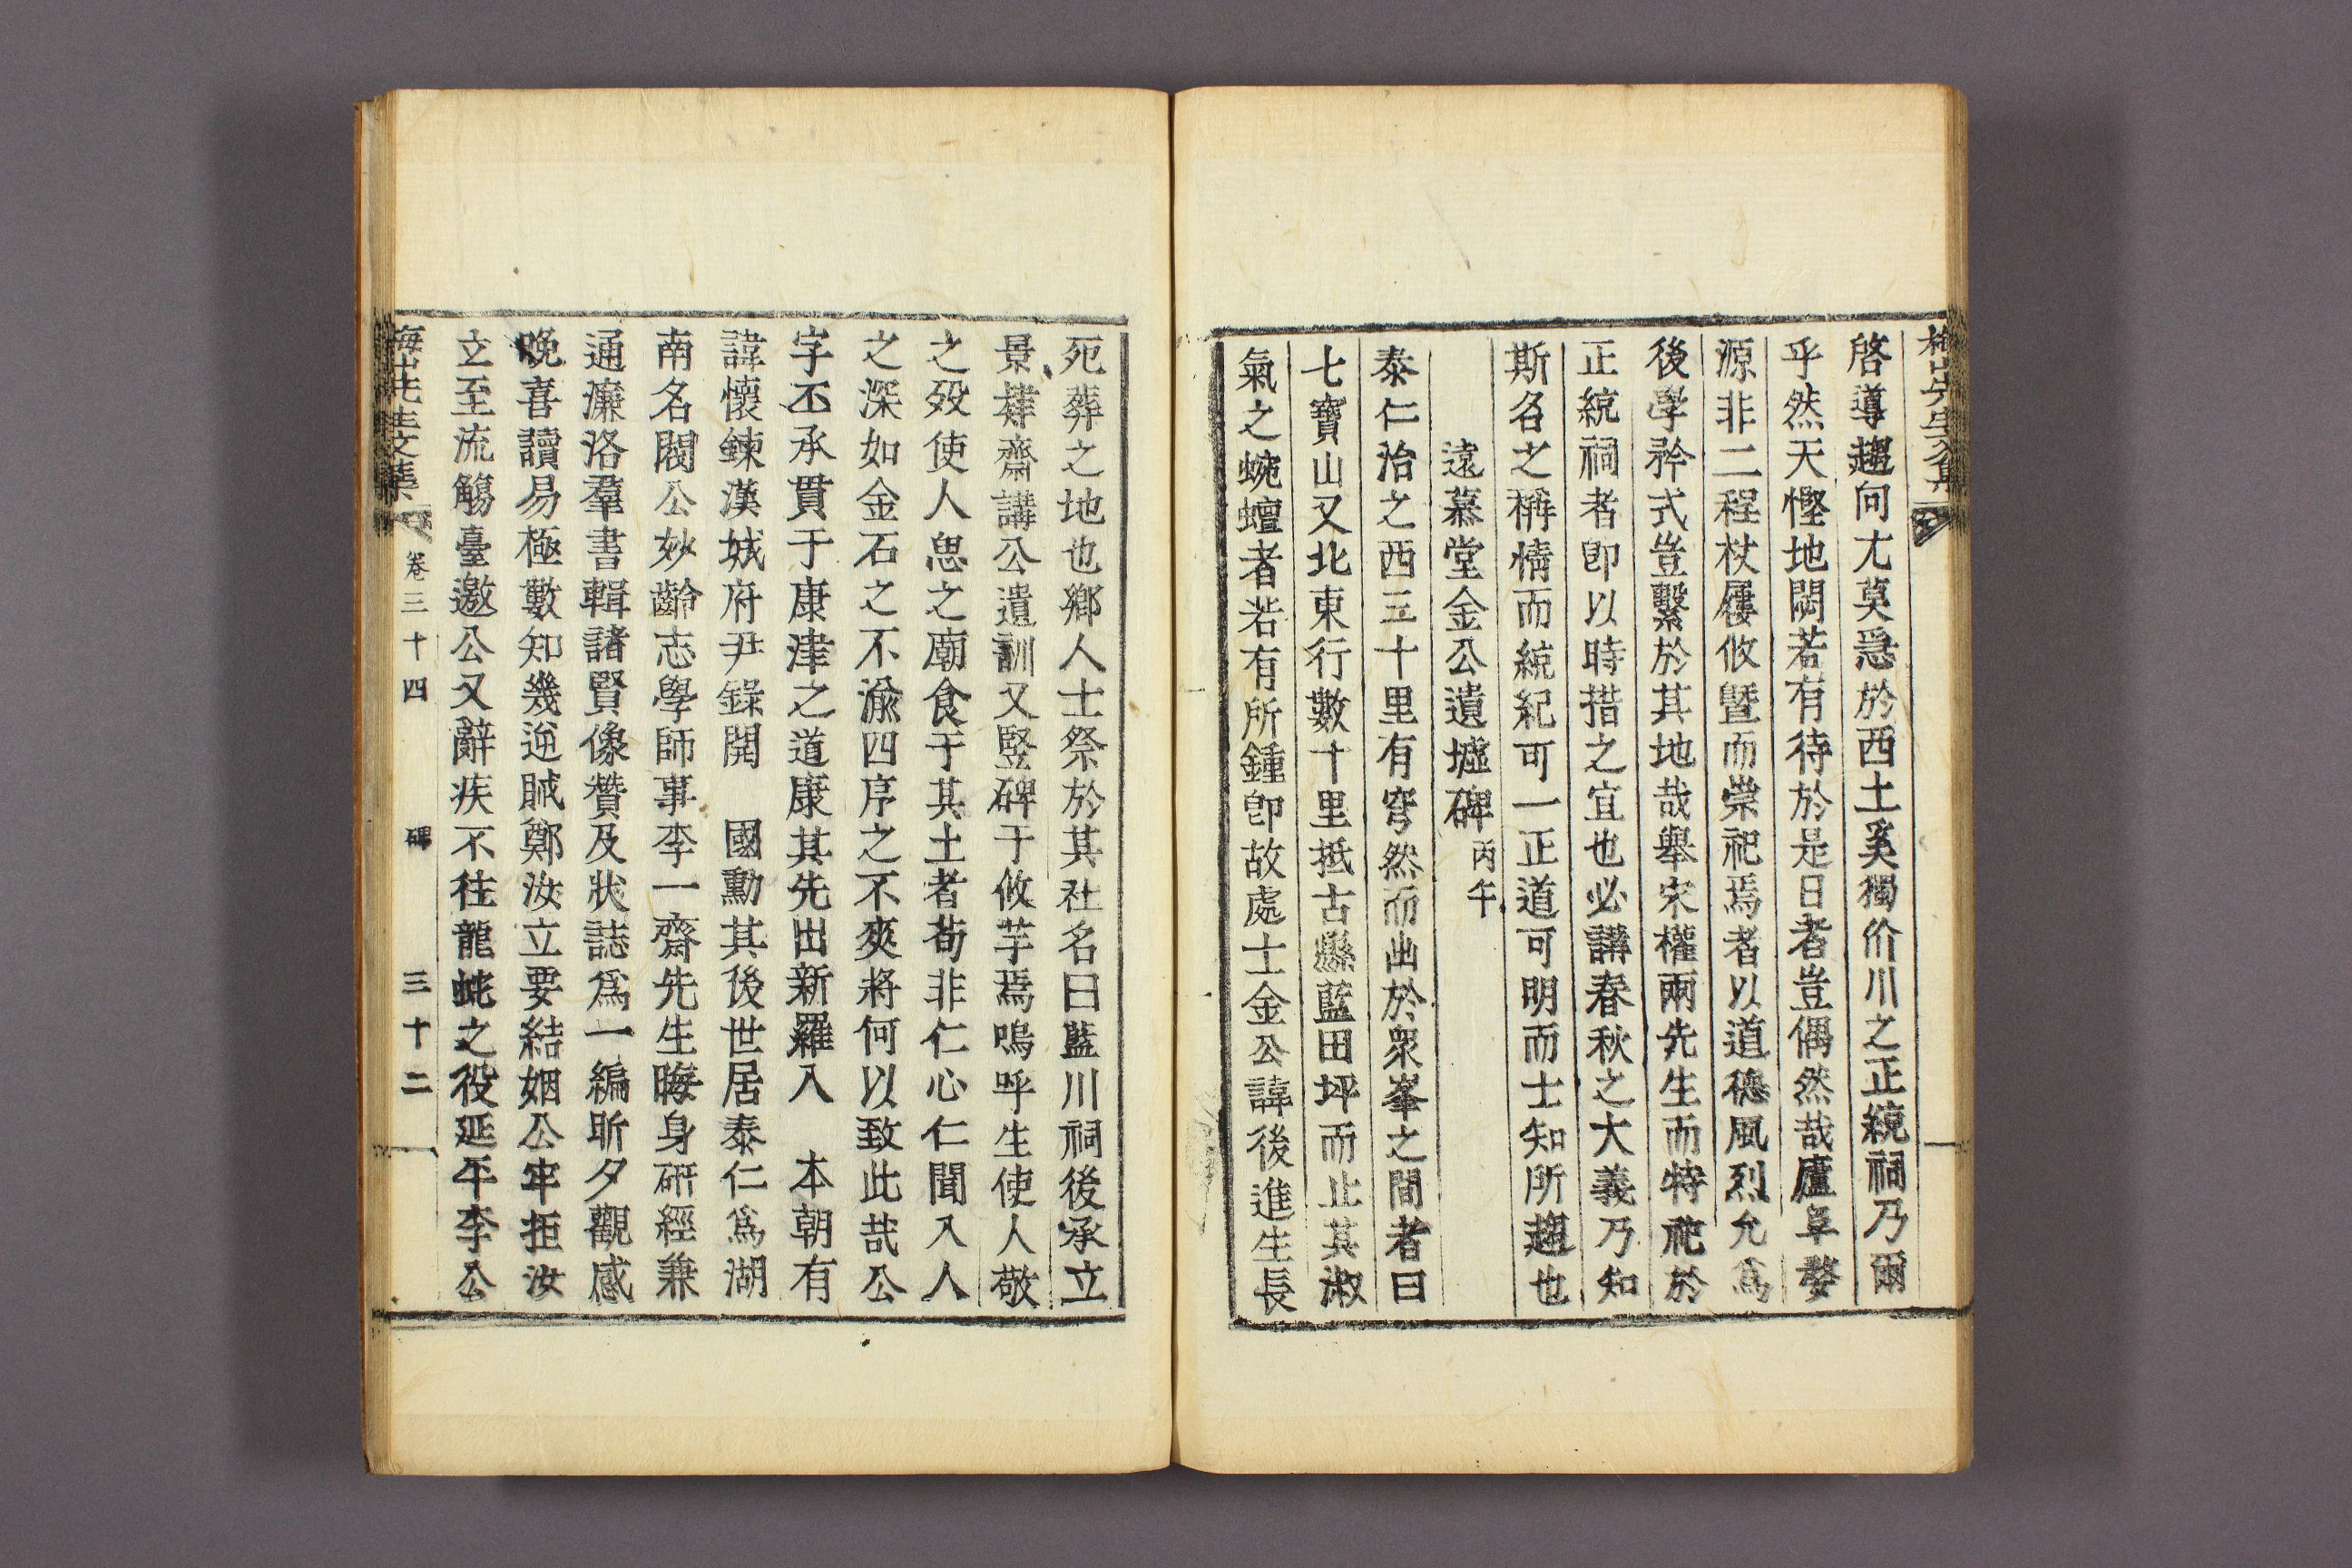 梅山先生文集
啓導趨向尤莫急於西土奚獨价川之正統祠乃爾
乎然天慳地閟若有待於是日者豈偶然哉廬阜婺
源非二程杖屨攸曁而崇祀焉者以道德風烈允爲
後學矜式豈繫於其地哉舉宋權兩先生而特祀於
正統祠者卽以時措之宜也必講春秋之大義乃知
斯名之稱情而統紀可一正道可明而士知所趨也
遠慕堂金公遺墟碑丙午
泰仁治之西三十里有穹然而幽於衆峯之間者曰
七寶山又北東行數十里抵古縣藍田坪而止其淑
氣之蜿蟺者若有所鍾卽故處士金公諱後進生長
死葬之地也鄕人士祭於其社名曰藍川祠後承立
景肄齋講公遺訓又竪碑于攸芋焉嗚呼生使人敬
之歿使人思之廟食于其土者苟非仁心仁聞入人
之深如金石之不渝四序之不爽將何以致此哉公
字丕承貫于康津之道康其先出新羅入　本朝有
諱懷鍊漢城府尹錄開　國勳其後世居泰仁爲湖
南名閥公妙齡志學師事李一齋先生晦身硏經兼
通濂洛羣書輯諸賢像贊及狀誌爲一編昕夕觀感
晚喜讀易極數知幾逆賊鄭汝立要結姻公牢拒汝
立至流觴臺邀公又辭疾不往龍蛇之役延平李公
梅山先生文集　卷三十四　碑　三十二